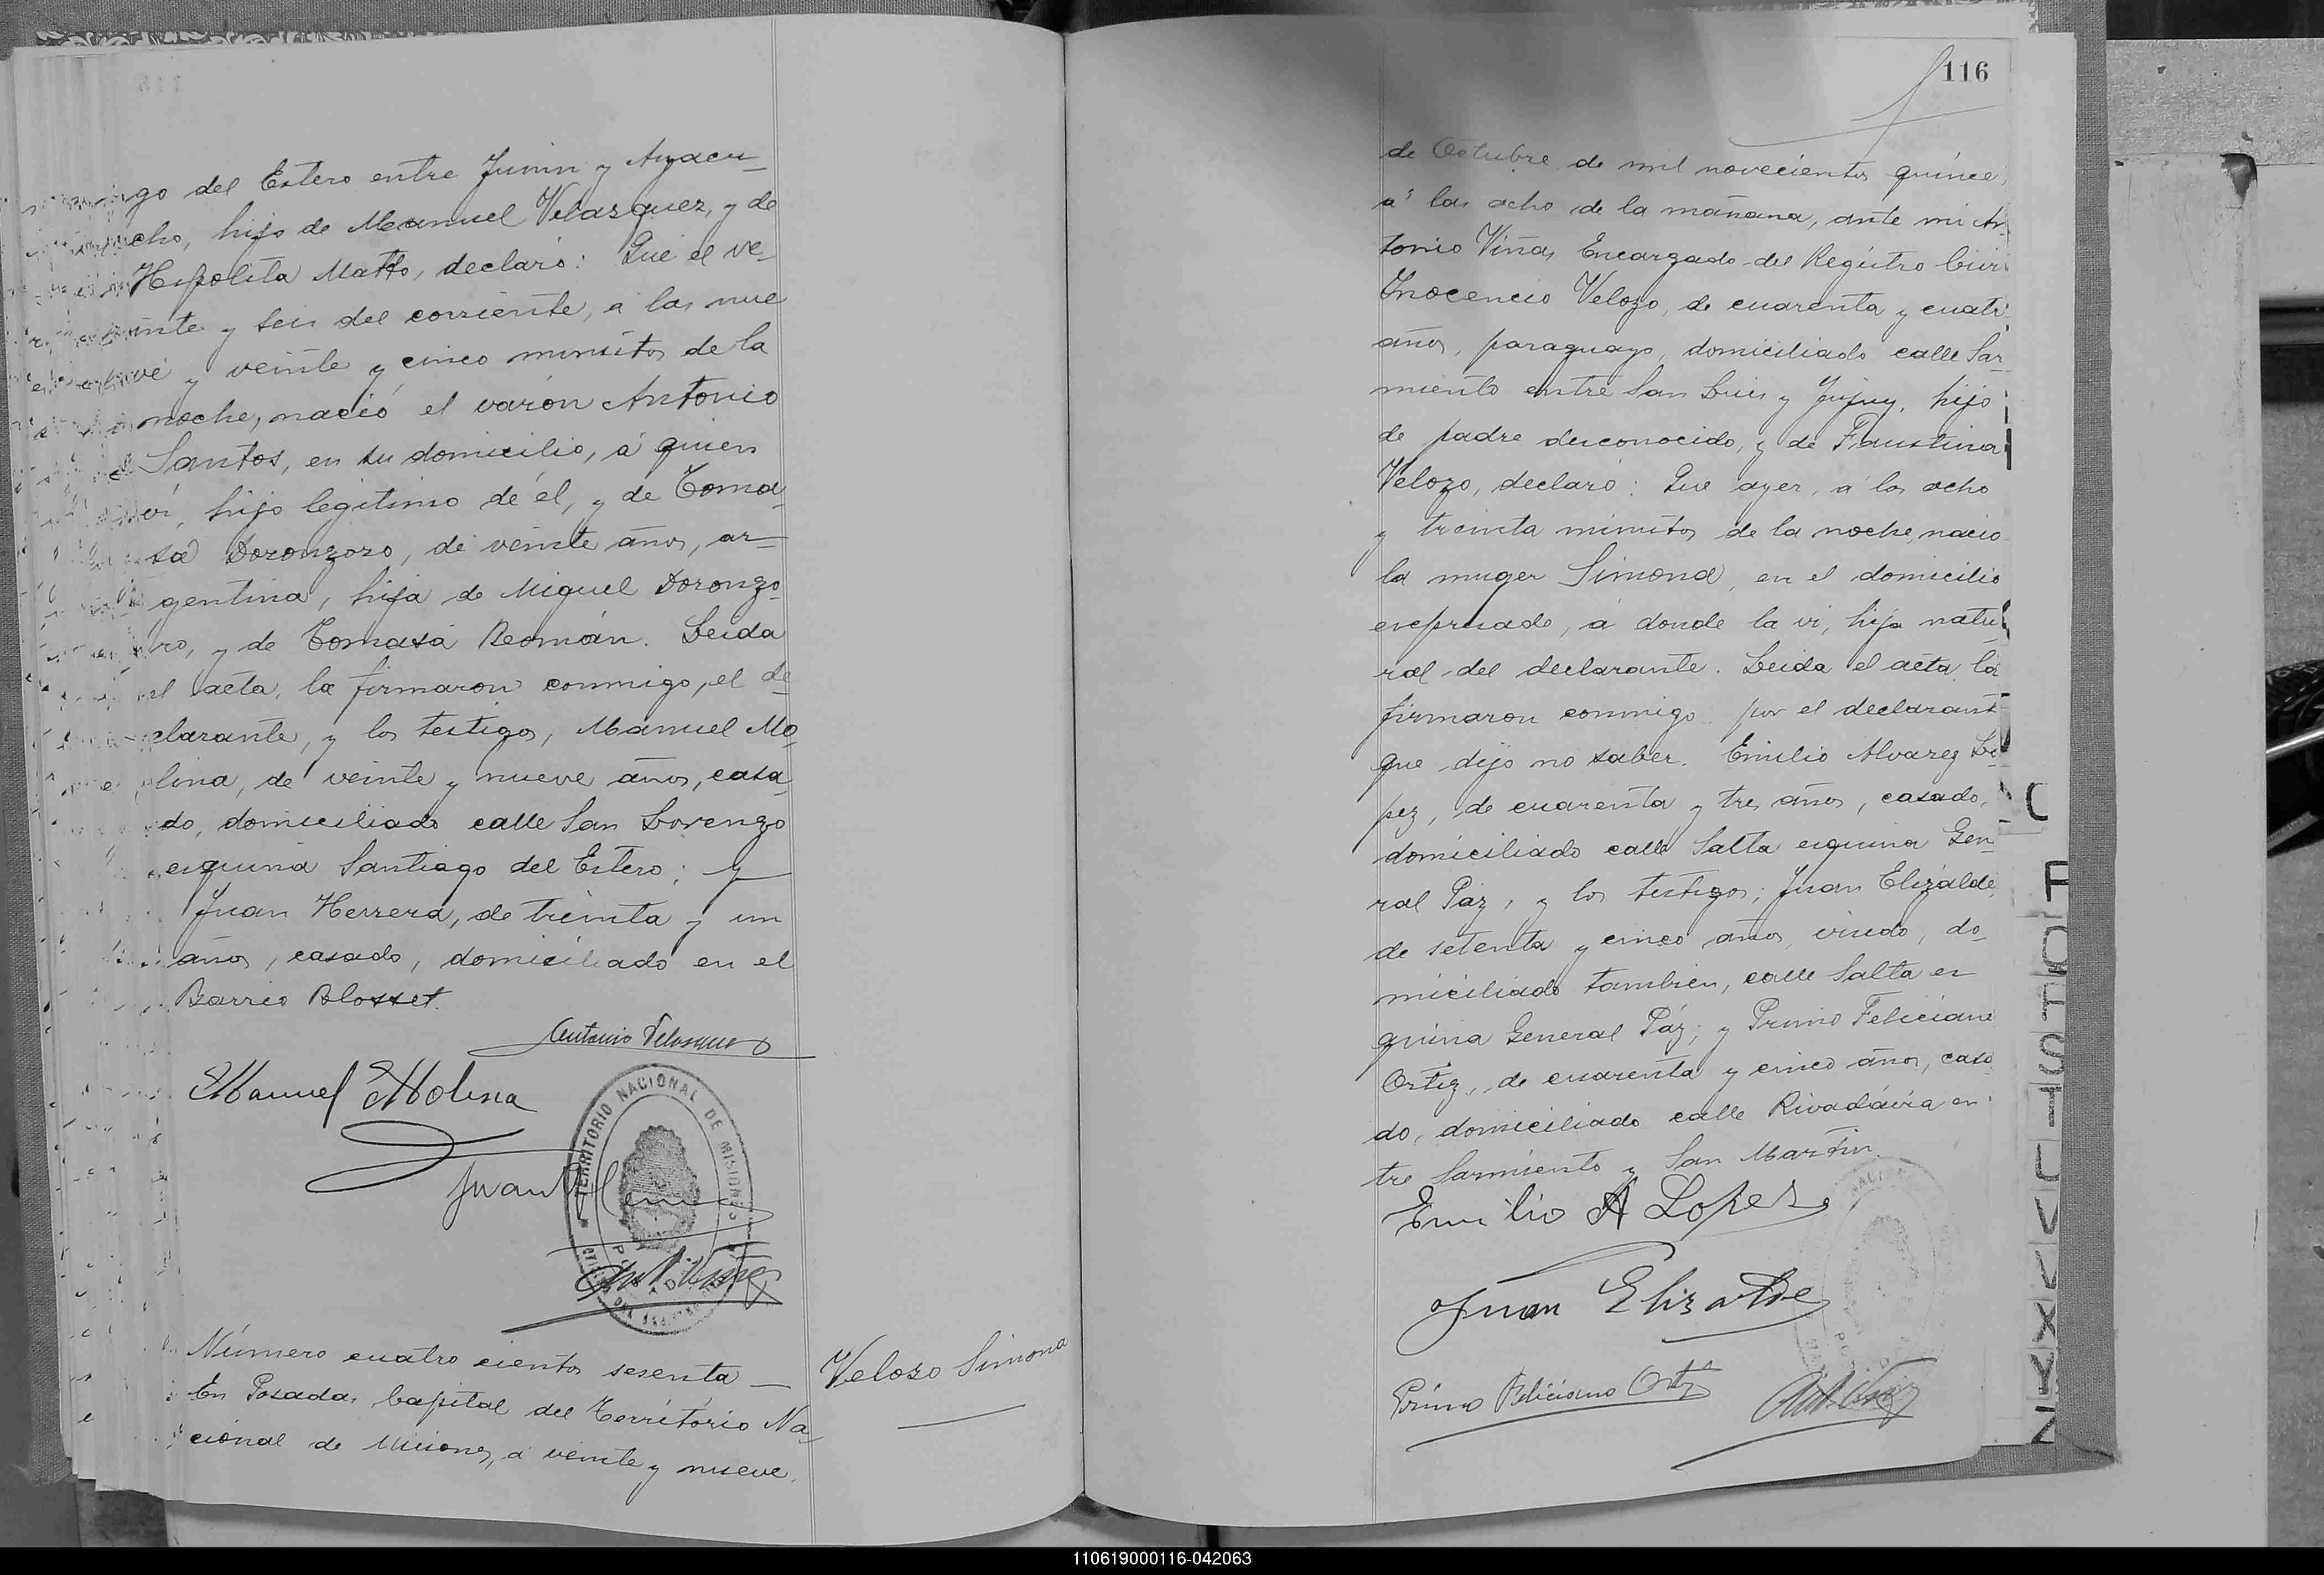 go del Estero entre Junin y Ayacu-
cho, hijo de Manuel Velazquez, y de
Hipolita Matto, declaró: Que el ve-
inte y seis del corriente, a las nue
ve y veinte y cinco minutos de la
noche, nació el varón Antonio
Santos, en su domicilio, á quien
ví, hijo legitimo de él, y de Toma-
sa Doronzoro, de veinte años, ar-
gentina, hija de Miguel Doronzo-
ro, y de Tomasa Román. Leida
el acta, la firmaron conmigo, el de
clarante, y los testigos, Manuel Mo-
lina, de veinte y nueve años, casa-
do, domiciliado calle San Lorenzo
esquina Santiago del Estero; y
Juan Herrera, de treinta y un
años, casado, domiciliado en el
Barrio Blosset.
Antonio Velasquez
Manuel Molina
Juan Herrera
TERRITORIO NACIONAL DE MISIONES
Número cuatro cientos sesenta —
En Posadas Capital del Territorio Na-
cional de Misiones, á veinte y nueve
Velozo Simona
116
de Octubre de mil novecientos quince,
a las ocho de la mañana, ante mi An
tonio Viñas Encargado del Registro Civil
Inocencio Velozo, de cuarenta y cuatro
años, paraguayo, domiciliado calle Sar-
miento entre San Luis y Jujuy, hijo
de padre desconocido, y de Faustina
Velozo, declaró: Que ayer, a las ocho
y treinta minutos de la noche, nacio
la muger Simona, en el domicilio
expresado, á donde la ví, hija natu
ral del declarante. Leida el acta, la
firmaron conmigo por el declarant
que dijo no saber. Emilio Alvarez Lo
pez, de cuarenta y tres años, casado,
domiciliado calle Salta esquina Gen
ral Paz, y los testigos; Juan Elizalde,
de setenta y cinco años, viudo, do-
miciliado tambien, calle Salta es
quina General Páz; y Primo Feliciano
Ortiz, de cuarenta y cinco años, casa
do, domiciliado calle Rivadavia en-
tre Sarmiento y San Martin.
Emilio A Lopez
Juan Elizalde
Primo Feliciano Ortiz
110619000116-042063